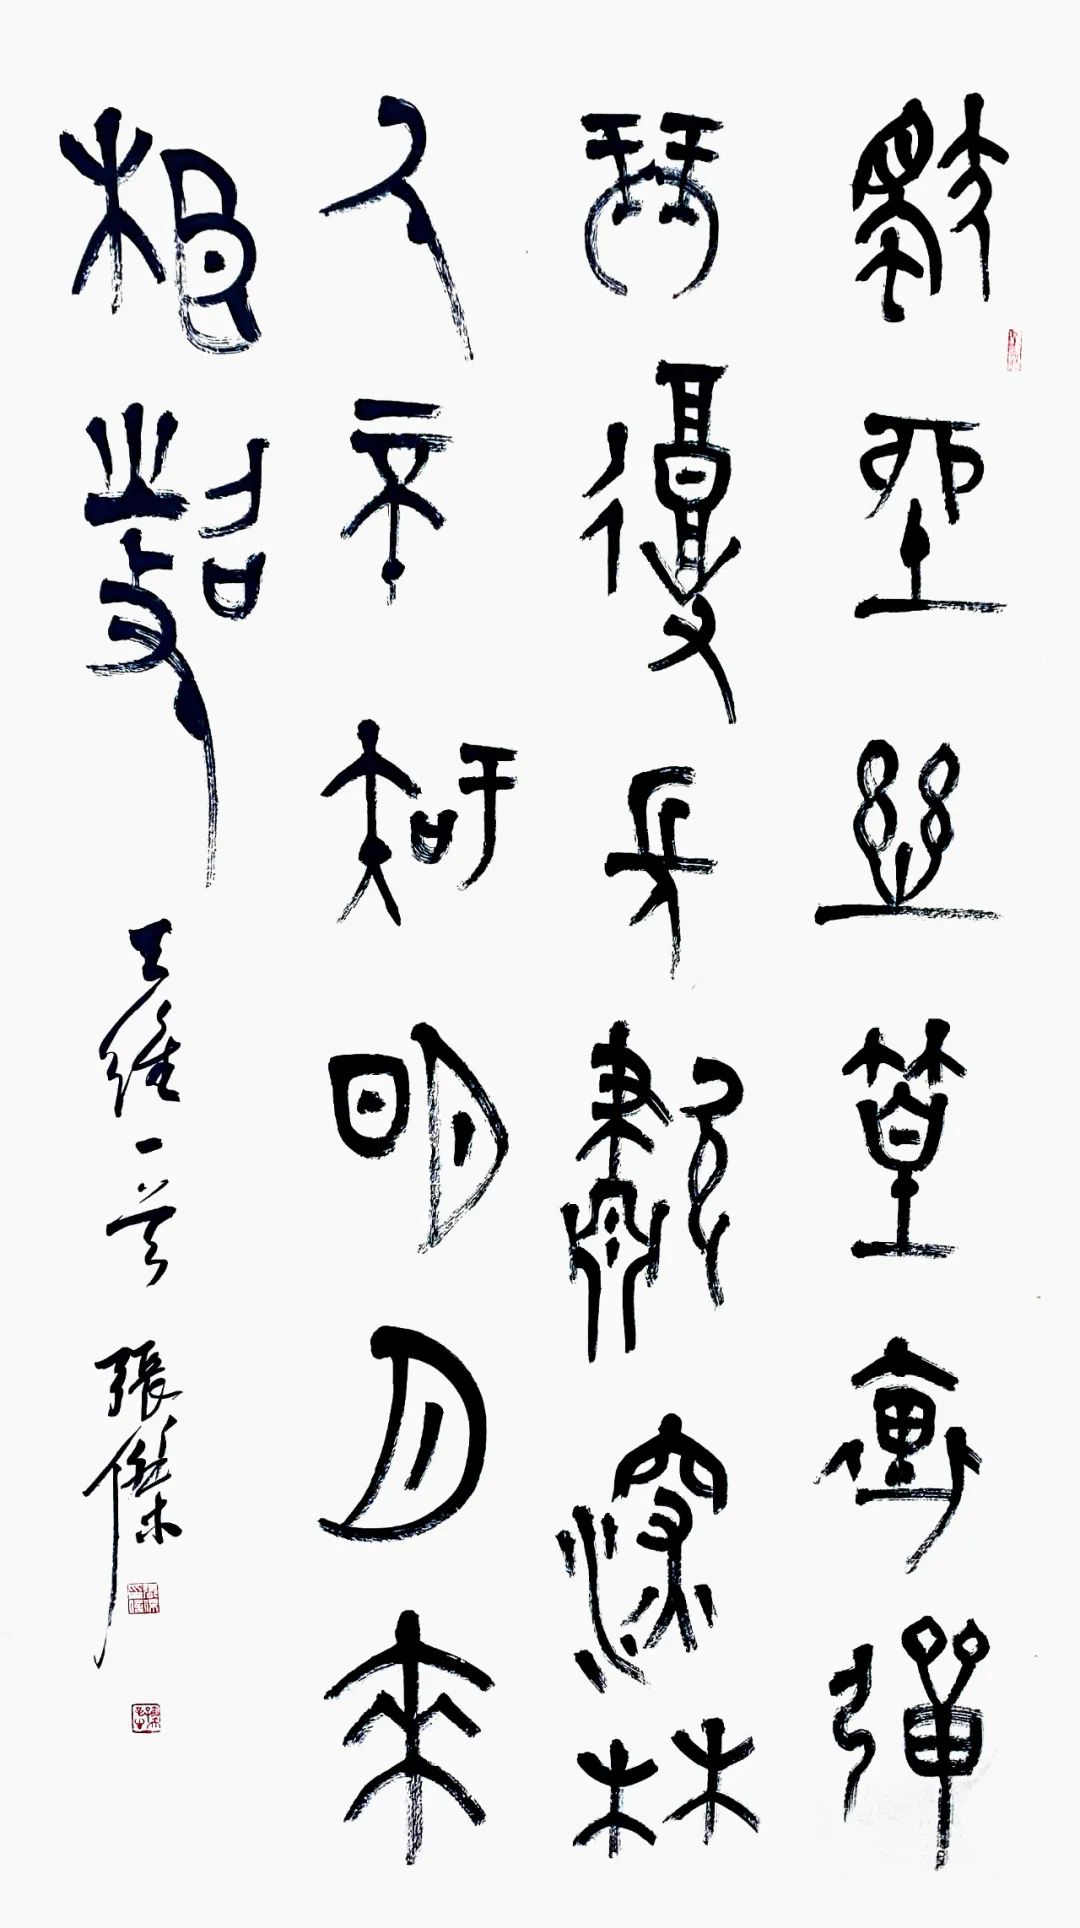 獨坐幽篁裏彈
琴復長嘯深林
人不知明月來
相照
王維一首 張傑